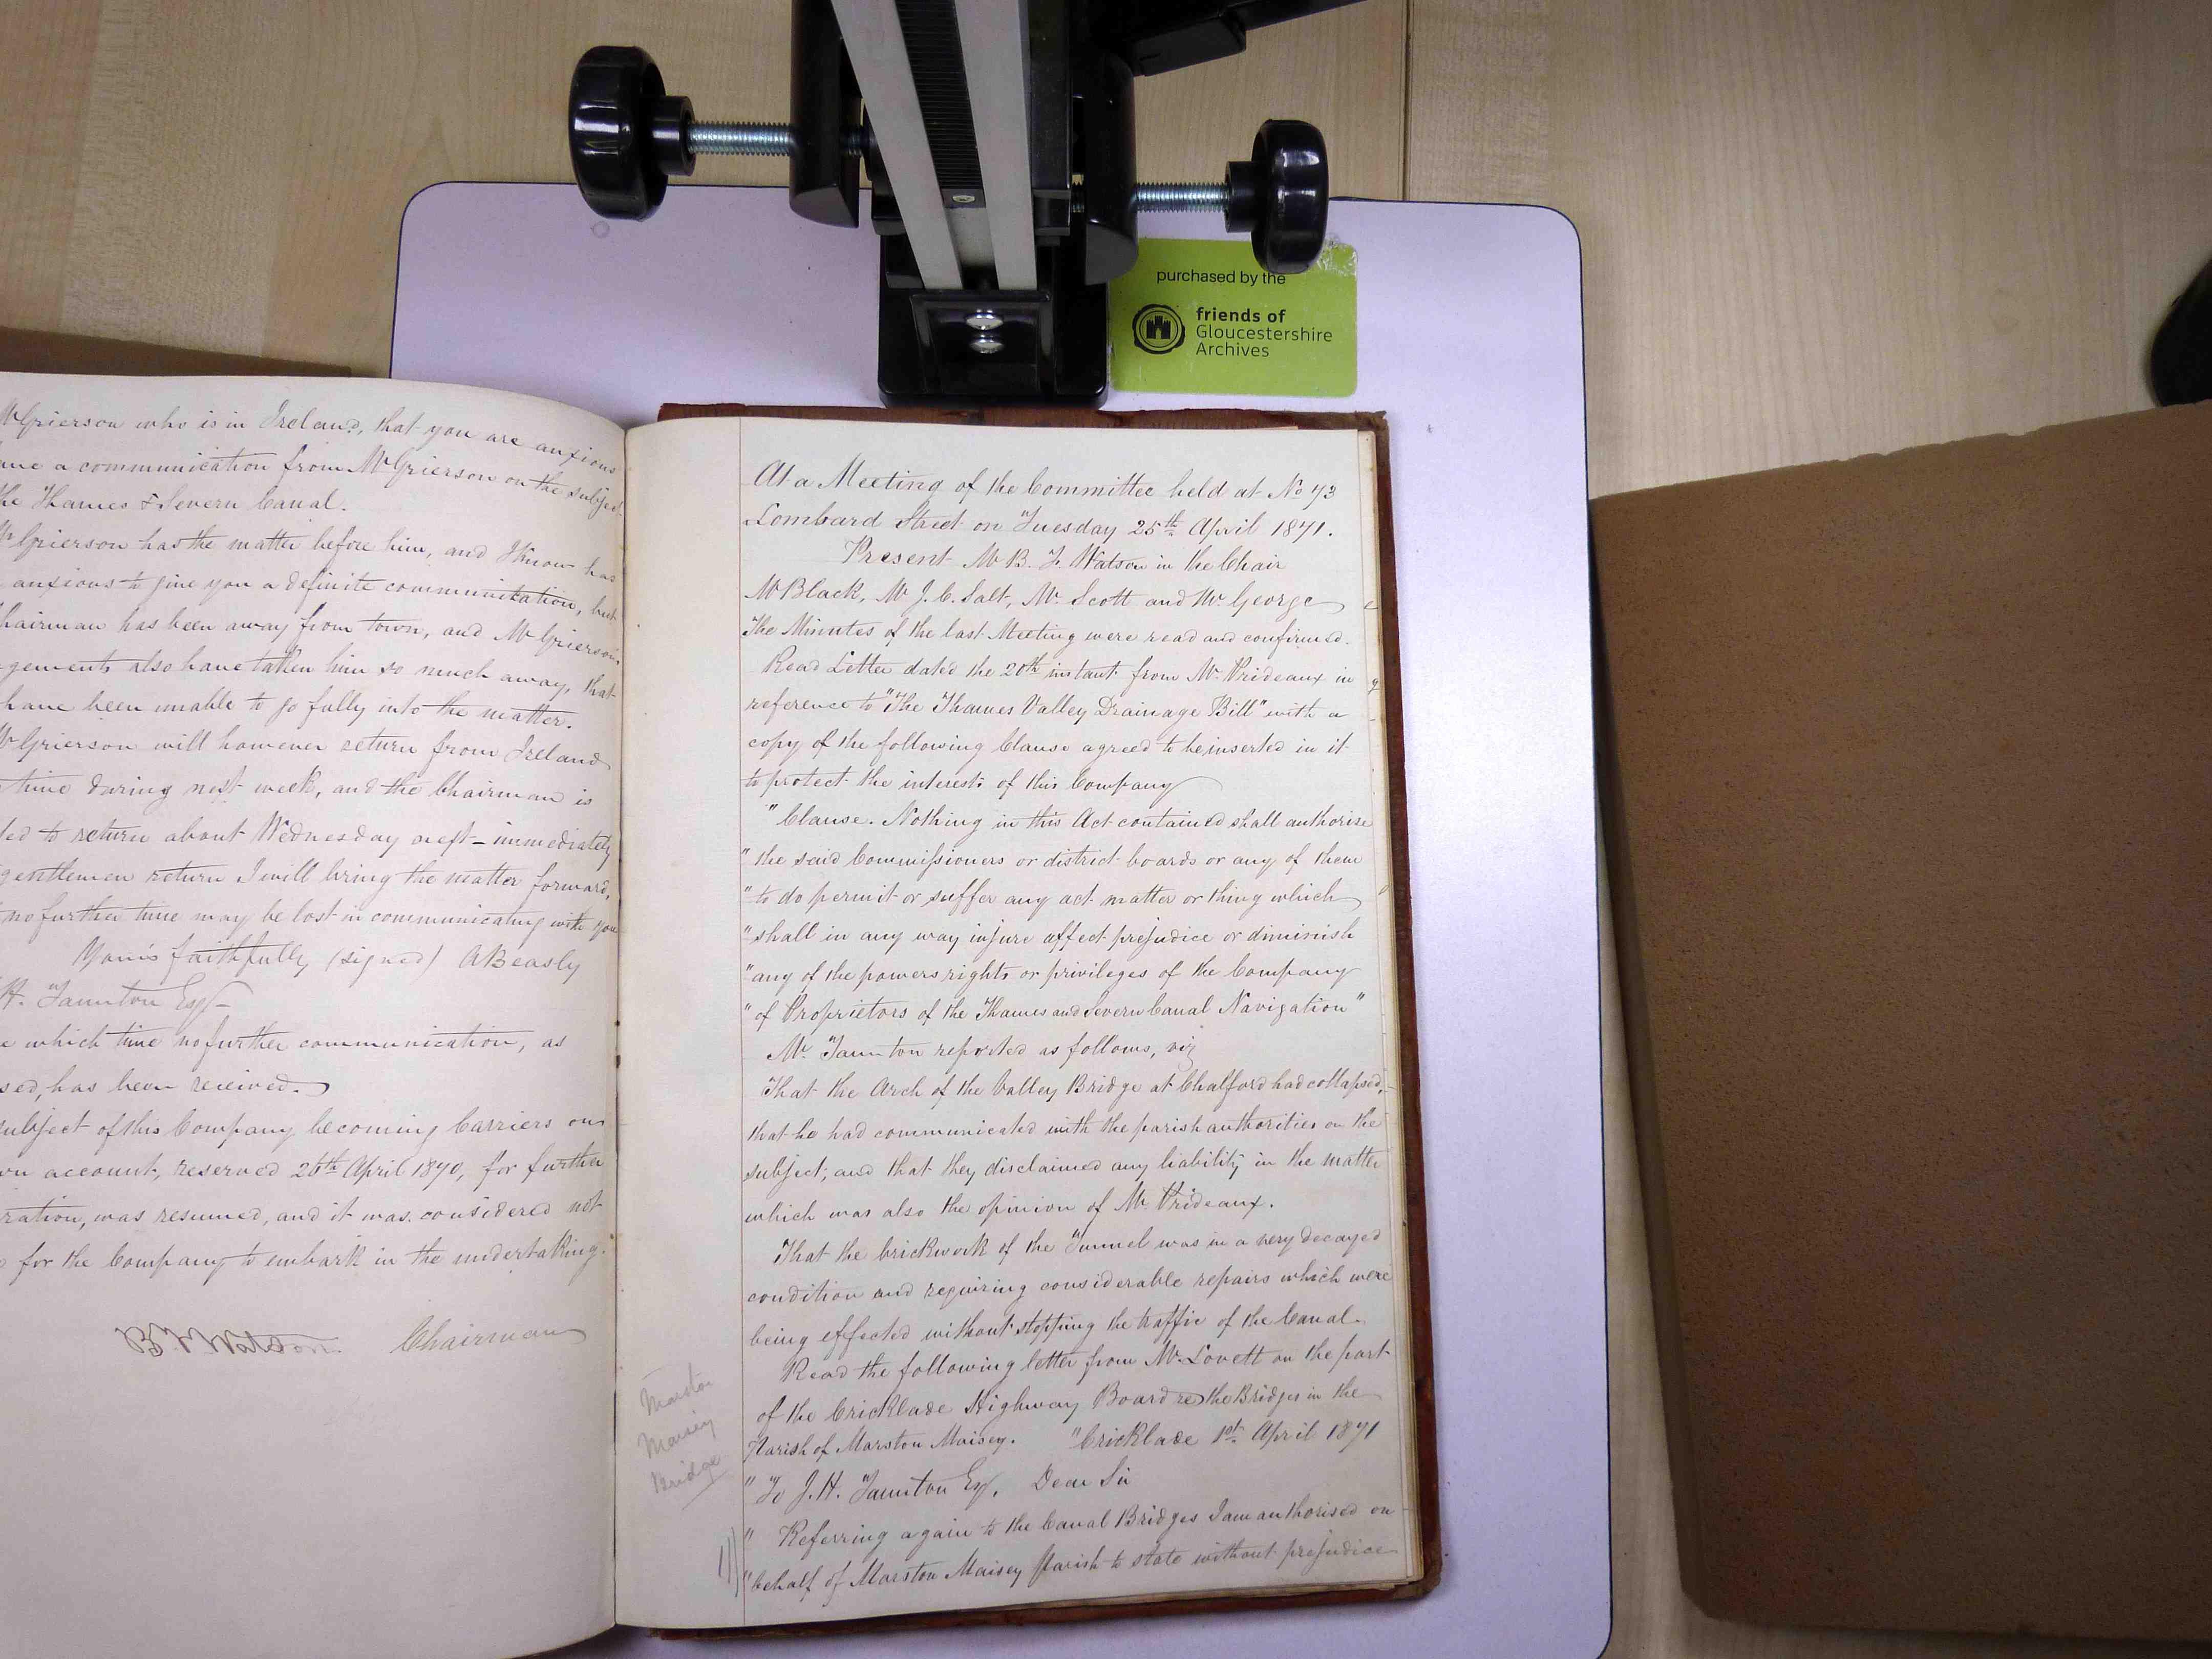 purchased by the
friends of
Gloucestershire
Archives
Mr Grierson who is in Ireland, that you are anxious
a communication from Mr Grierson on the subject
the Thames & Severn Canal.
Mr Grierson has the matter before him, and I know has
anxious to give you a definite communication, but
Chairman has been away from town, and Mr Grierson's
also have taken him so much away, that
have been unable to go fully into the matter.
Mr Grierson will however return from Ireland
time during next week, and the Chairman is
to return about Wednesday next – immediately
gentlemen return I will bring the matter forward,
no further time may be lost in communicating with you
Yours faithfully (signed) A Beasly
H. Taunton Esqr
which time no further communication, as
has been received.
subject of this Company becoming Carriers on
account, reserved 26th April 1870, for further
was resumed, and it was considered not
for the Company to embark in the undertaking.
Chairman
At a Meeting of the Committee held at No 73
Lombard Street on Tuesday 25th April 1871.
Present Mr B. F. Watson in the Chair
Mr Black, Mr J. C. Salt, Mr Scott and Mr George
The Minutes of the last Meeting were read and confirmed.
Read Letter dated the 20th instant from Mr Prideaux in
reference to "The Thames Valley Drainage Bill" with a
copy of the following Clause agreed to be inserted in it
to protect the interests of this Company
"Clause. Nothing in this Act contained shall authorise
"the said Commissioners or district boards or any of them
"to do permit or suffer any act matter or thing which
"shall in any way injure affect prejudice or diminish
"any of the powers rights or privileges of the Company
"of Proprietors of the Thames and Severn Canal Navigation"
Mr Taunton reported as follows, viz
That the Arch of the Valley Bridge at Chalford had collapsed,
that he had communicated with the parish authorities on the
subject, and that they disclaimed any liability in the matter
which was also the opinion of Mr Prideaux.
That the brickwork of the Tunnel was in a very decayed
condition and requiring considerable repairs which were
being effected without stopping the traffic of the Canal.
Read the following letter from Mr Lovett on the part
of the Cricklade Highway Board re the Bridges in the
Parish of Marston Maisey. "Cricklade 1st April 1871
"To J. H. Taunton Esq. Dear Sir
" Referring again to the Canal Bridges I am authorised on
"behalf of Marston Maisey Parish to state without prejudice
Marston
Maisey
Bridge